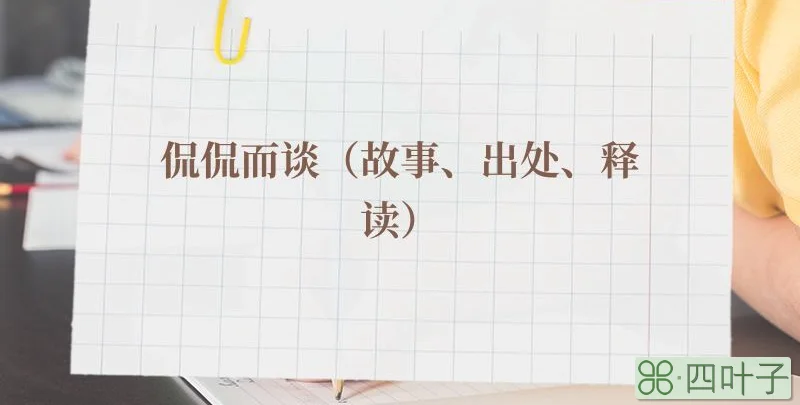 侃侃而谈（故事、出处、释
读）
四叶子